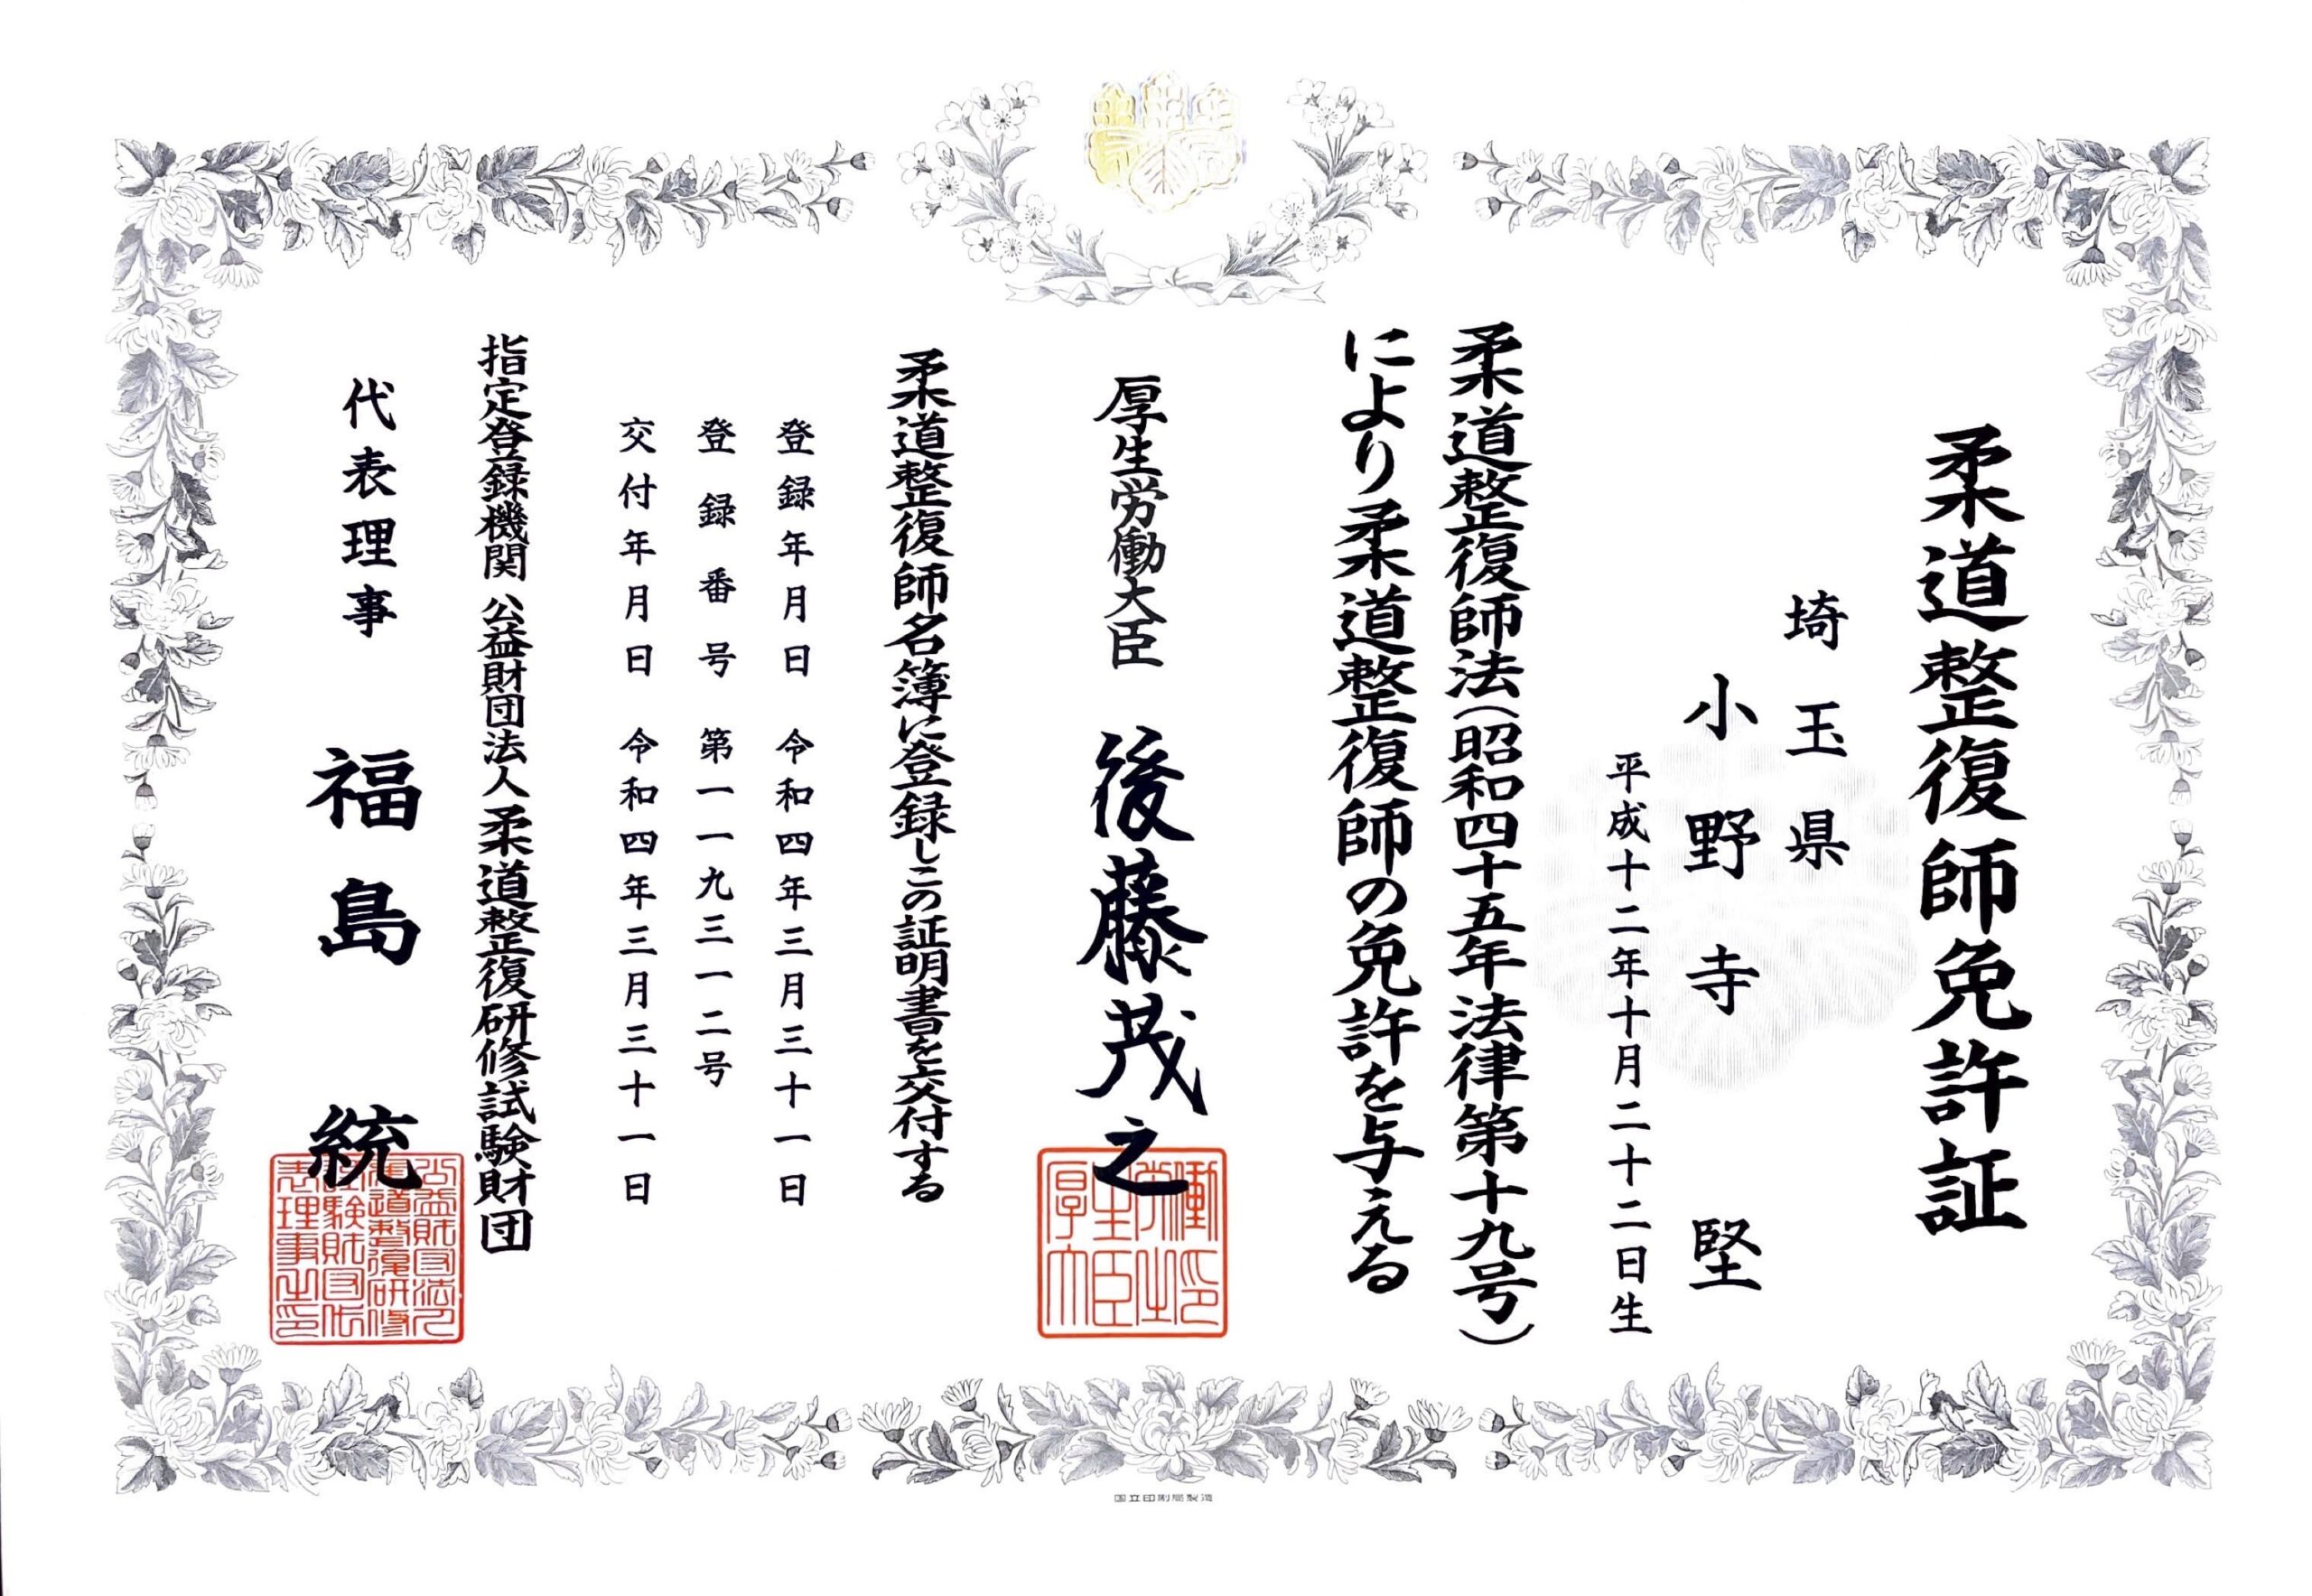 柔道整復師免許証
埼玉県
小野寺 堅
平成十二年十月二十二日生
柔道整復師法(昭和四十五年法律第十九号)
により柔道整復師の免許を与える
厚生労働大臣 後藤茂之
柔道整復師名簿に登録しこの証明書を交付する
登録年月日 令和四年三月三十一日
登録番号 第一一九三一二号
交付年月日 令和四年三月三十一日
指定登録機関 公益財団法人柔道整復研修試験財団
代表理事 福島 統
国立印刷局製造